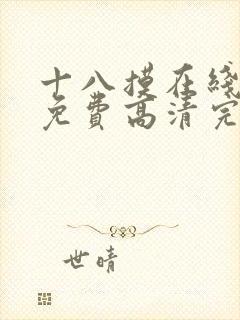 十八摸在线
免费高清完
世晴